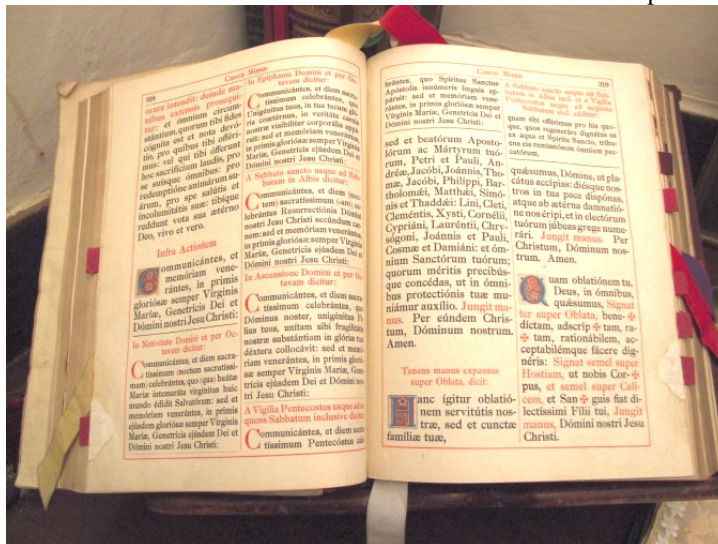 Canon Missæ
orare intendit: deinde ma-
nibus extensis prosequi-
tur: et ómnium circum-
stántium, quorum tibi fides
cógnita est et nota devó-
tio, pro quibus tibi offéri-
mus: vel qui tibi ófferunt
hoc sacrifícium laudis, pro
se suísque ómnibus: pro
redemptióne animárum su-
árum, pro spe salútis et
incolumitátis suæ: tibíque
reddunt vota sua ætérno
Deo, vivo et vero.
Infra Actionem
Communicántes, et
memóriam vene-
rántes, in primis
gloriósæ semper Vírginis
Maríæ, Genetrícis Dei et
Dómini nostri Jesu Christi:
In Nativitate Domini et per Oc-
tavam dicitur:
Communicántes, et diem sacra-
tíssimum (noctem sacratíssi-
mam) celebrántes, quo (qua) beátæ
Maríæ intemeráta virgínitas huic
mundo édidit Salvatórem: sed et
memóriam venerántes, in primis
ejúsdem gloriósæ semper Vírginis
Maríæ, Genetrícis ejúsdem Dei et
Dómini nostri Jesu Christi:
In Epiphania Domini et per Oc-
tavam dicitur:
Communicántes, et diem sacra-
tíssimum celebrántes, quo
Unigénitus tuus, in tua tecum gló-
ria coætérnus, in veritáte carnis
nostræ visibíliter corporális appá-
ruit: sed et memóriam venerántes,
in primis gloriósæ semper Vírginis
Maríæ, Genetrícis ejúsdem Dei et
Dómini nostri Jesu Christi:
A Sabbato sancto usque ad Sab-
batum in Albis dicitur:
Communicántes, et diem (noc-
tem) sacratíssimum (-am) ce-
lebrántes Resurrectiónis Dómini
nostri Jesu Christi secúndum car-
nem: sed et memóriam venerántes,
in primis gloriósæ semper Vírginis
Maríæ, Genetrícis ejúsdem Dei et
Dómini nostri Jesu Christi:
In Ascensione Domini et per Oc-
tavam dicitur:
Communicántes, et diem sacra-
tíssimum celebrántes, quo
Dóminus noster, unigénitus Fí-
lius tuus, unítam sibi fragilitátis
nostræ substántiam in glóriæ tuæ
déxtera collocávit: sed et memó-
riam venerántes, in primis glorió-
sæ semper Vírginis Maríæ, Gene-
trícis ejúsdem Dei et Dómini nos-
tri Jesu Christi:
A Vigilia Pentecostes usque ad se-
quens Sabbatum inclusive dicitur:
Communicántes, et diem sacra-
tíssimum Pentecóstes cele-
Canon Missæ
319
brántes, quo Spíritus Sanctus
Apóstolis innúmeris linguis ap-
páruit: sed et memóriam vene-
rántes, in primis gloriósæ semper
Vírginis Maríæ, Genetrícis Dei et
Dómini nostri Jesu Christi:
sed et beatórum Aposto-
lórum ac Mártyrum tuó-
rum, Petri et Pauli, An-
dréæ, Jacóbi, Joánnis, Tho-
mæ, Jacóbi, Philíppi, Bar-
tholomǽi, Matthǽi, Simó-
nis et Thaddǽi: Lini, Cleti,
Cleméntis, Xysti, Cornélii,
Cypriáni, Lauréntii, Chry-
sógoni, Joánnis et Pauli,
Cosmæ et Damiáni: et óm-
nium Sanctórum tuórum;
quorum méritis precibús-
que concédas, ut in ómni-
bus protectiónis tuæ mu-
niámur auxílio. Jungit ma-
nus. Per eúndem Chris-
tum, Dóminum nostrum.
Amen.
Tenens manus expansas
super Oblata, dicit:
Hanc ígitur oblatió-
nem servitútis nos-
træ, sed et cunctæ
famíliæ tuæ,
A Sabbato sancto usque ad Sab-
batum in Albis incl. et a Vigilia
Pentecostes usque ad sequens
Sabbatum incl. additur:
quam tibi offérimus pro his quo-
que, quos regeneráre dignátus es
ex aqua et Spíritu Sancto, tríbu-
ens eis remissiónem ómnium pec-
catórum,
quǽsumus, Dómine, ut pla-
cátus accípias: diésque nos-
tros in tua pace dispónas,
atque ab ætérna damnatió-
ne nos éripi, et in electórum
tuórum júbeas grege nume-
rári. Jungit manus. Per
Christum, Dóminum nos-
trum. Amen.
Quam oblatiónem tu,
Deus, in ómnibus,
quǽsumus, Signat
ter super Oblata, bene✠
díctam, adscríp✠tam, ra-
✠tam, rationábilem, ac-
ceptabilémque fácere dig-
néris: Signat semel super
Hostiam, ut nobis Cor✠
pus, et semel super Cali-
cem, et San✠guis fiat di-
lectíssimi Fílii tui, Jungit
manus, Dómini nostri Jesu
Christi.